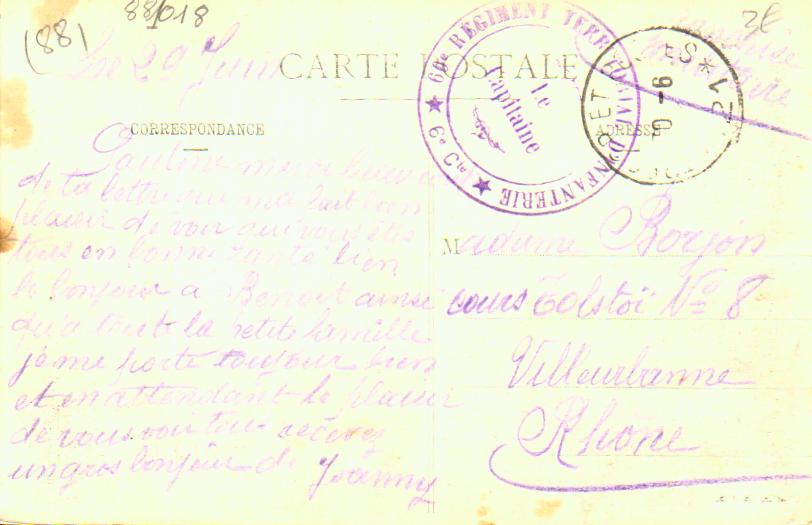 (88)
88/018
3€
Le 29 Juin
CARTE POSTALE
CORRESPONDANCE
ADRESSE
60e RÉGIMENT TERRITORIAL D'INFANTERIE
6e Cie
Le Capitaine
Pauline merci
de ta lettre qui ma fait bien
plaisir de voir que vous êtes
tous en bonne zante bien
le bonjour a Benoit ainsi
qu'a toute la petite famille
je me porte toujour bien
et en attendant le plaisir
de vous voir tous recevez
un gros bonjour de Joanny
Madame Borjon
cours Tolstoï No 8
Villeurbanne
Rhone